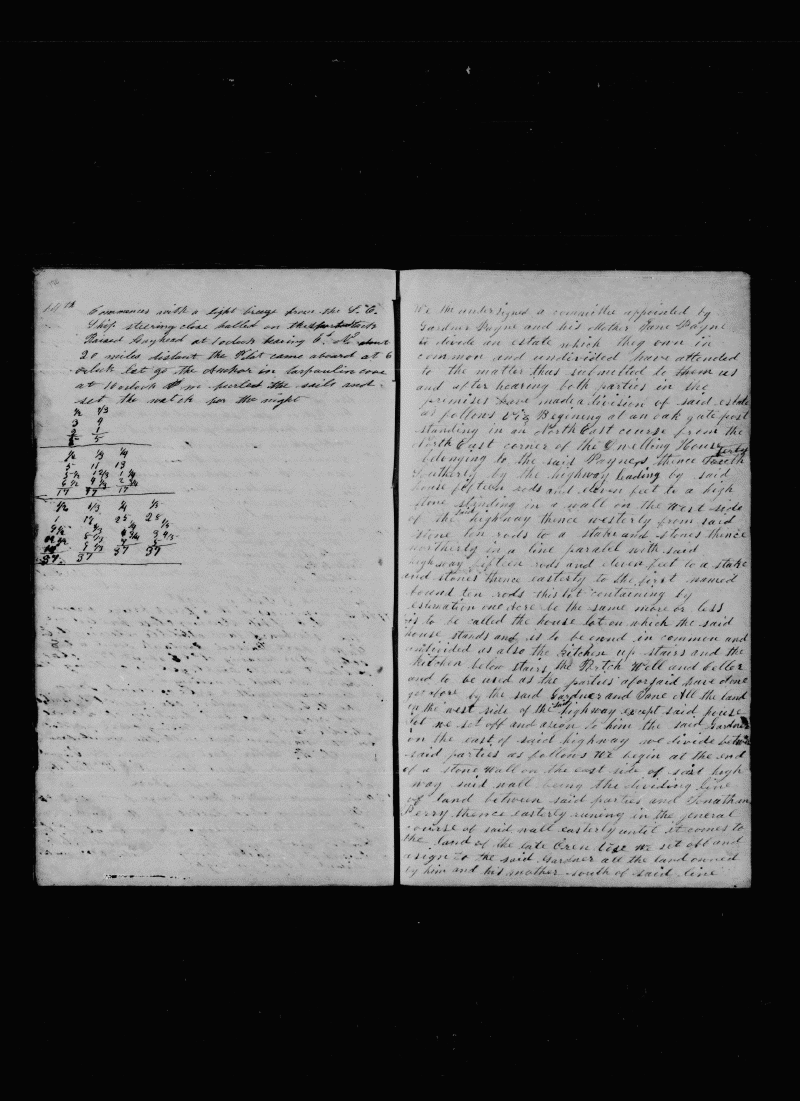 14th
Commences with a light breeze from the S. E.
Ship steering close halled on the Starboard tack
Raised Gayhead at 1 oclock bearing E. N about
20 miles distant the Pilot came aboard at 6
oclock let go the Anchor in tarpaulin cove
at 10 oclock P M furled the sails and
set the watch for the night
½ ⅓
3 9
2 1
5
½ ⅓ ¼
5 11 13
17 37 17
½ ⅓ ¼ ⅕
1 25 25
37 37 37 37
We the undersigned a committee appointed by
Gardner Payne and his Mother Jane Payne
to divide an estate which they own in
common and undivided have attended
to the matter thus submitted to them us
and after hearing both parties in the
premises have made a division of said estate
as follows viz Begining at an oak gate post
standing in an North East course from the
North East corner of the Dwelling House
belonging to the said Paynes thence
Southerly by the highway leading by said
house fifteen rods and eleven feet to a high
stone standing in a wall on the West side
of the said highway thence westerly from said
stone ten rods to a stake and stones thence
northerly in a line paralel with said
highway fifteen rods and eleven feet to a stake
and stones thence easterly to the first named
bound ten rods this lot containing by
estimation one Acre be the same more or less
is to be called the house lot on which the said
house stands and is to be ownd in common and
undivided as also the Kitchen up stairs and the
Kitchen below stairs the Portch Well and Celler
and to be used as the parties aforsaid have done
before by the said Gardner and Jane All the land
on the west side of the said highway except said house
lot we set off and asign to him the said Gardner
on the east of said highway we divide between
said parties as follows We begin at the end
of a stone wall on the east side of said high
way said wall being the dividing line
of land between said parties and Jonathan
Berry thence easterly runing in the general
course of said wall easterly until it comes to
the land of the late Oren we set off and
asign to the said Gardner all the land owned
by him and his mother south of said line